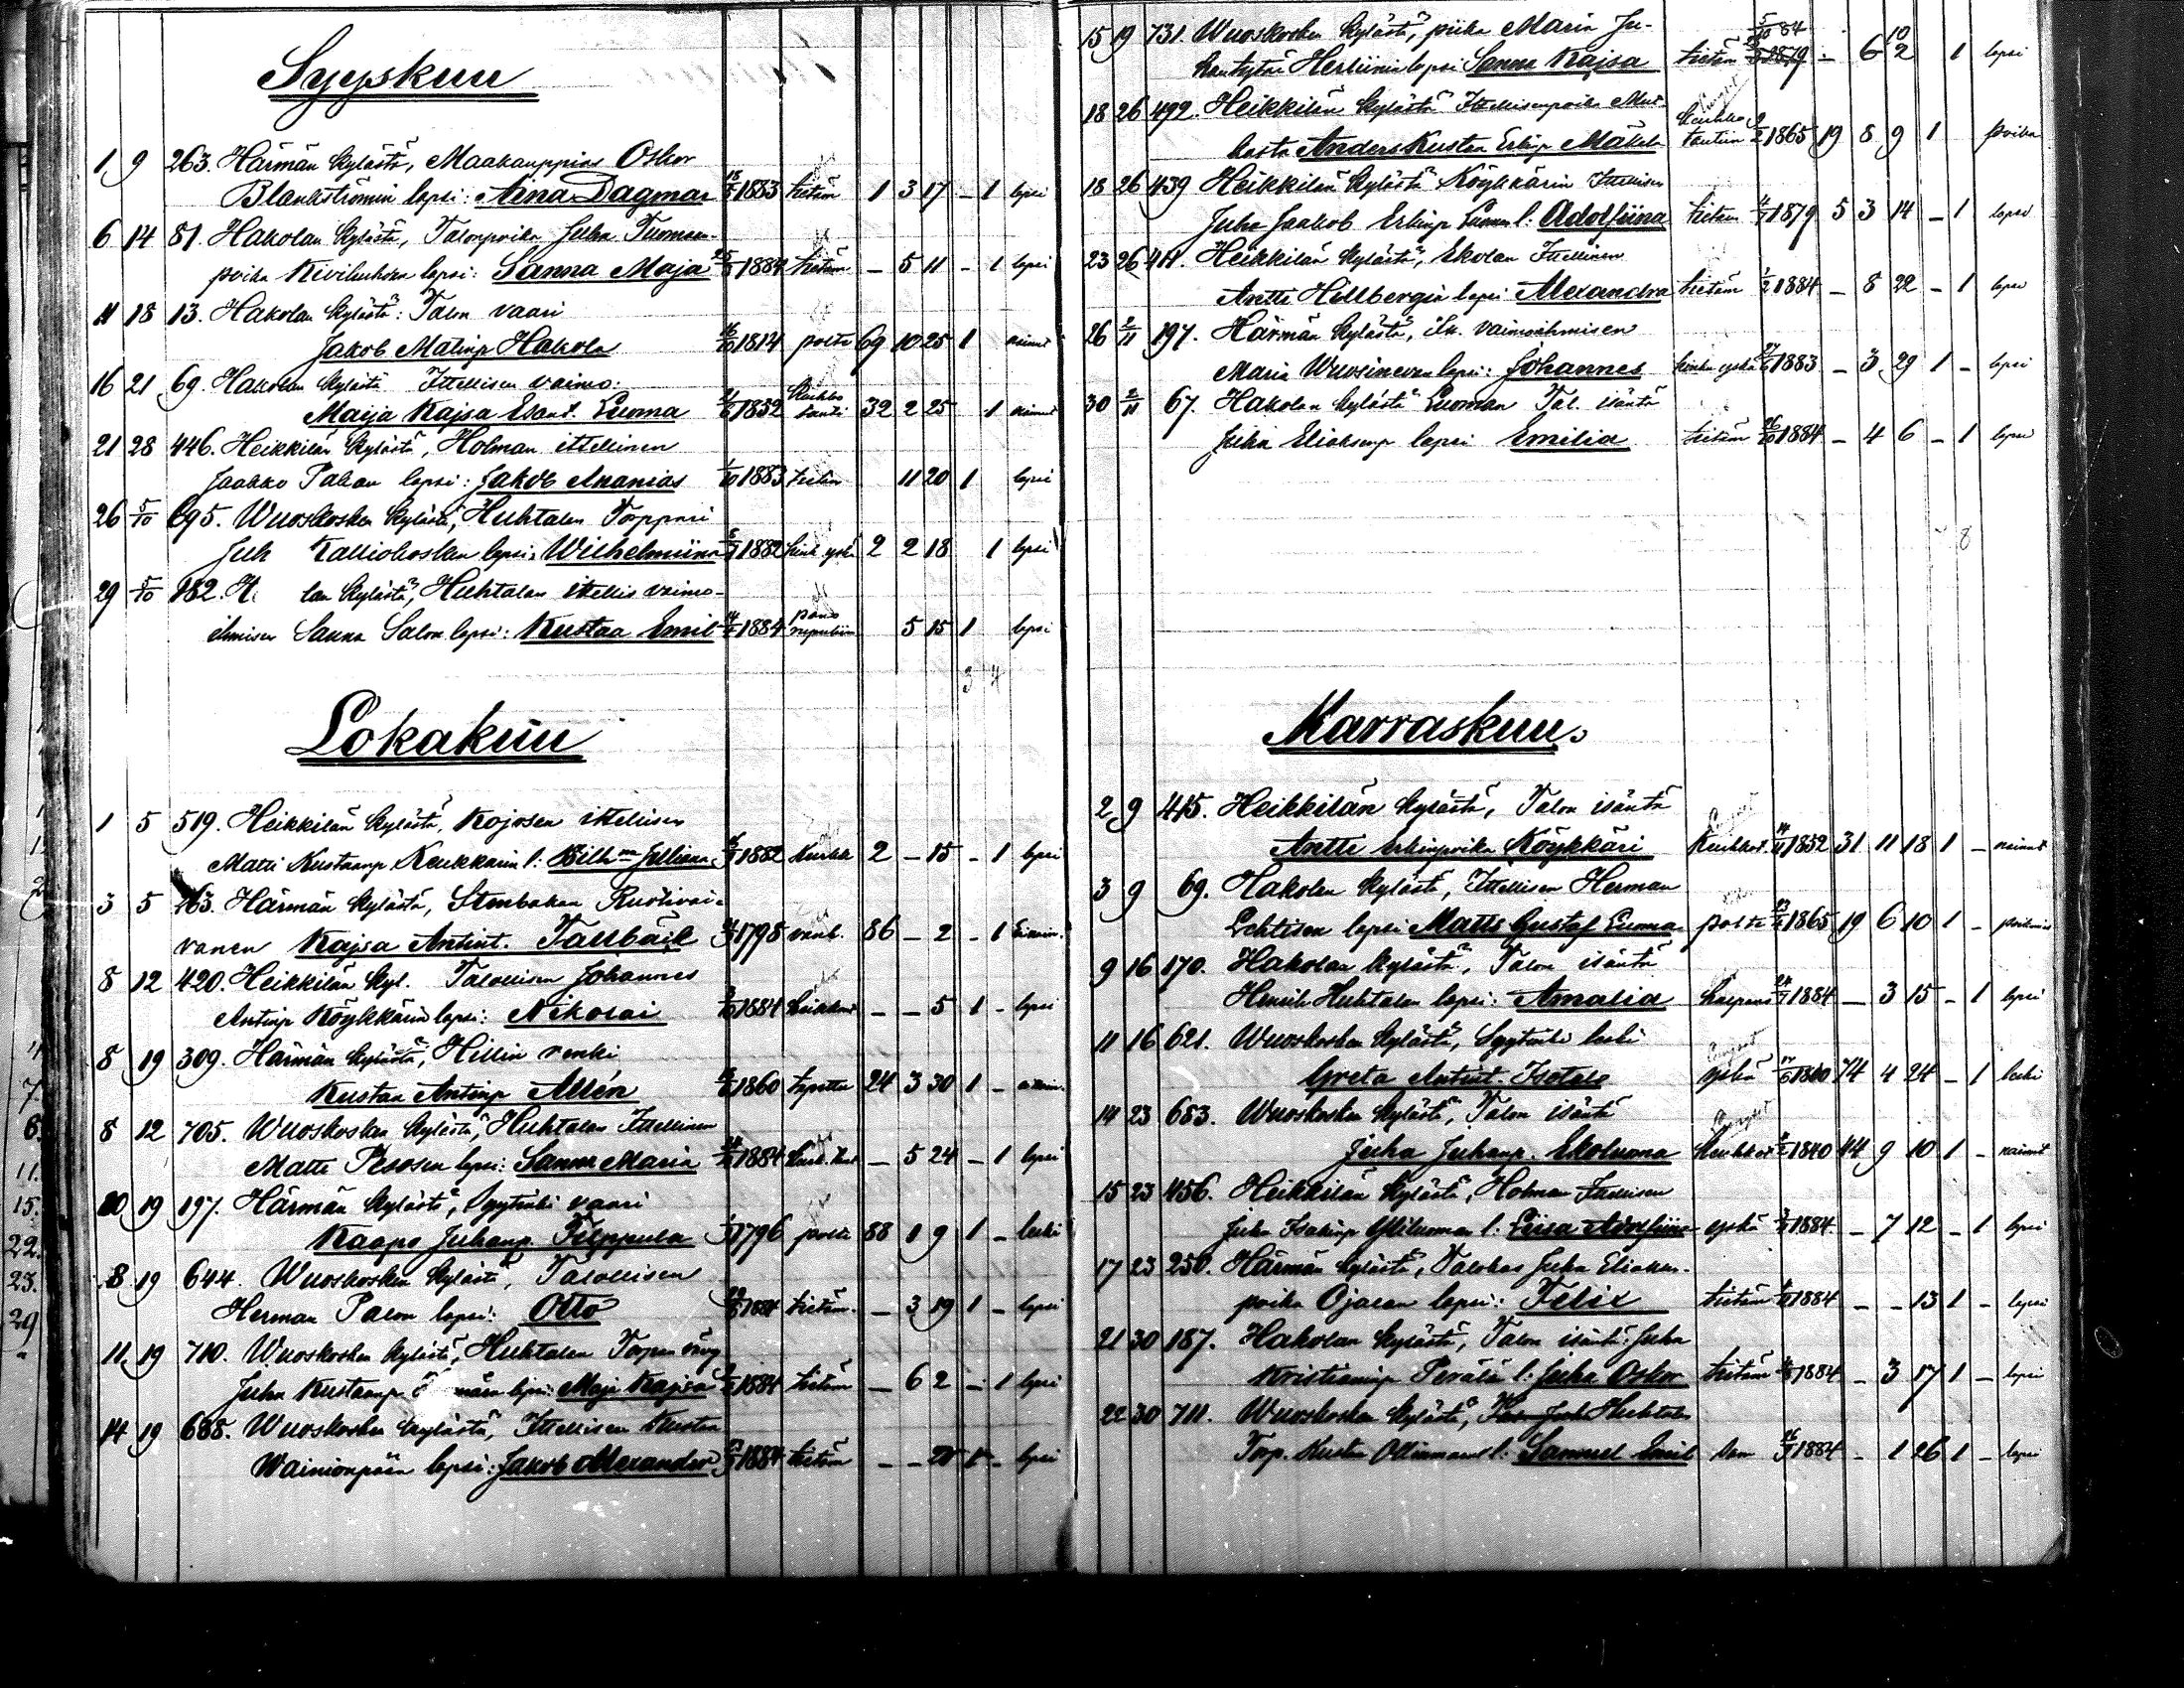 Syyskuu
1 9 263. Härmän kylästä, Maakauppias Oskar
Blankströmin lapsi: Aina Dagmar 18/5 1883 tietäm 1 3 17 - 1 lapsi
6 14 81. Hakolan kylästä, Talonpoika Juha Tuomaan-
poika Kiviluhdan lapsi: Sanna Maja 1884 tietäm - 5 11 - 1 lapsi
11 18 13. Hakolan kylästä: Talon vaari
Jakob Matinp Hakola 1814 polte 69 10 25 1 nainut
16 21 69. Hakolan kylästä Ittellisen vaimo:
Maija Kajsa Luoma 1852 Keuhko tauti 32 2 25 1 nainut
21 28 446. Heikkilän kylästä, Holman ittellinen
Jaakko Palian lapsi: Jakob Ananias 1/10 1883 tietäm 11 20 1 lapsi
26 5/10 695. Wuoskosken kylästä, Huhtalan Torppari
Juh Kalliokosken lapsi: Wilhelmiina 1882 hink yskä 2 2 18 1 lapsi
29 5/10 182. H lan kylästä, Huhtalan ittellis vaimo-
ihmisen Sanna Salon lapsi: Kustaa Emil 14/4 1884 5 15 1 lapsi
3 4
Lokakuu
1 5 519. Heikkilän kylästä, Kojosen ittellisen
Matti Kustaanp Keukkarin l: Wilhna Julliana 1882 Keuhk 2 - 15 - 1 lapsi
3 5 163. Härmän kylästä, Stenbakan Ruotivai-
vanen Kajsa Antint. Tallbäck 1798 vanh. 86 - 2 - 1
8 12 420. Heikkilän kyl. Talollisen Johannes
Antinp Köykkärin lapsi: Nikolai 3/10 1884 - - 5 1 - lapsi
8 19 309. Härmän kylästä, Hillin renki
Kustaa Antinp Allén 1860 tapettu 24 3 30 1 -
8 12 705. Wuoskosken kylästä, Huhtalan Ittellinen
Matti Pesosen lapsi: Sanna Maria 14/4 1884 - 5 24 - 1 lapsi
10 19 197. Härmän kylästä, Syytinki vaari
Kaapo Juhanp. Filppula 1796 polte 88 1 9 1 - leski
8 19 644. Wuoskosken kylästä, Talollisen
Herman Palon lapsi: Otto 1884 tietäm. - 3 19 1 - lapsi
11 19 710. Wuoskosken kylästä, Huhtalan Torpan
Juha Kustaanp lapsi: Maja Kajsa 1884 tietäm - 6 2 - 1 lapsi
14 19 688. Wuoskosken kylästä, Ittellisen Kustaa
Wainionpään lapsi: Jakob Alexander 1884 tietäm - - 1 - lapsi
15 19 731. Wuoskosken kylästä, piika Maria Ju-
hantytär Herlinin lapsi Sanna Kajsa tietäm 1879 - 6 2 1 lapsi
5/10 84
10
18 26 492. Heikkilän kylästä Ittellisenpoika
Anders Kustaa Erkinp Mäkelä keuhko tautiin 1865 19 8 9 1 poika
18 26 439 Heikkilän kylästä Köykkärin Ittellisen
Juha Jaakob Erkinp Luoma l: Adolfiina tietäm 4/7 1879 5 3 14 - 1 lapsi
23 26 411. Heikkilän kylästä, Ekolan Ittellinen
Antti Hellbergin lapsi Alexandra tietäm 1/2 1884 - 8 22 - 1 lapsi
26 2/11 197. Härmän kylästä, It. vaimoihmisen
Maria Wuorinevan lapsi: Johannes hinku yskä 1883 - 3 29 1 - lapsi
30 2/11 67. Hakolan kylästä Luoman Tal. isäntä
Juha Eliaksenp lapsi Emilia tietäm 1884 - 4 6 - 1 lapsi
8
Marraskuu.
2 9 415. Heikkilän kylästä, Talon isäntä
Antti Erkinpoika Köykkäri Keuhkot. 14/11 1852 31 11 18 1 - nainut
3 9 69. Hakolan kylästä, Ittellisen Herman
Lehtisen lapsi Matts Gustaf Luoma polte 23/4 1865 19 6 10 1 -
9 16 170. Hakolan kylästä, Talon isäntä
Henrik Huhtalan lapsi: Amalia 24/7 1884 - 3 15 - 1 lapsi
11 16 621. Wuoskosken kylästä, Syytinki leski
Greta Antint. Isotalo yskä 1810 74 4 24 - 1 leski
14 23 683. Wuoskosken kylästä, Talon isäntä
Juha Juhanp. Ekoluoma Keuhkot 1840 44 9 10 1 - nainut
15 23 456. Heikkilän kylästä, Holman Ittellisen
Juha Isakinp Yliluoman l: Leisa Adolfiina yskä 1884 - 7 12 - 1 lapsi
17 23 250. Härmän kylästä, Talokas Juha Eliaksen-
poika Ojasan lapsi: Felix tietäm 1884 - - 13 1 - lapsi
21 30 187. Hakolan kylästä, Talon isäntä: Juha
Kristianinp Perälä l: Juha Oskar tietäm 1884 - 3 17 1 - lapsi
22 30 711. Wuoskosken kylästä, Huhtalan
Torp. Kustaa l: Samuel Emil sam 1884 - 1 26 1 - lapsi